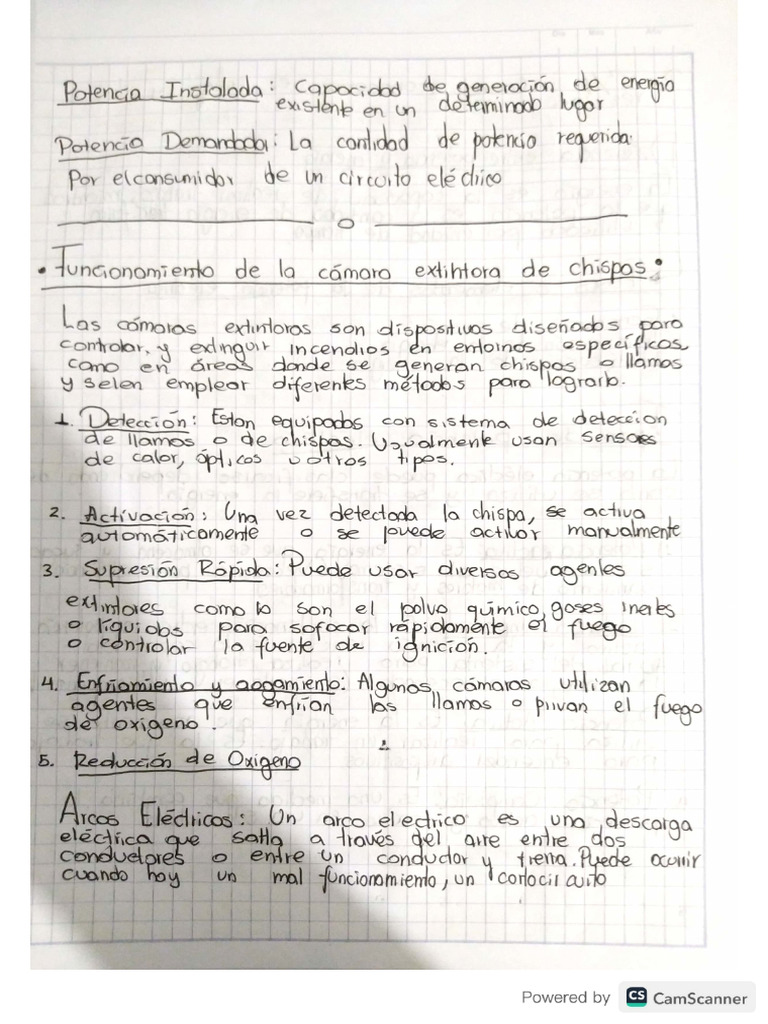 Potencia Instalada: Capacidad de generación de energía
existente en un determinado lugar
Potencia Demandada: La cantidad de potencia requerida
Por el consumidor de un circuito eléctrico
• Funcionamiento de la cámara extintora de chispas:
Las cámaras extintoras son dispositivos diseñados para
controlar, y extinguir incendios en entornos específicos
como en áreas donde se generan chispas o llamas
y selen emplear diferentes métodos para lograrlo.
1. Detección: Estan equipados con sistema de deteccion
de llamas o de chispas. Usualmente usan sensores
de calor, ópticos u otros tipos.
2. Activación: Una vez detectada la chispa, se activa
automáticamente o se puede activar manualmente
3. Supresión Rápida: Puede usar diversos agentes
extintores como lo son el polvo químico, gases inertes
o líquidos para sofocar rápidamente el fuego
o controlar la fuente de ignición.
4. Enfriamiento y aogamiento: Algunos cámaras utilizan
agentes que enfrían las llamas o privan el fuego
de oxigeno.
1
5. Reducción de Oxigeno
Arcos Eléctricos: Un arco electrico es una descarga
eléctrica que salta a través del aire entre dos
conductores o entre un conductor y tierra. Puede ocurrir
cuando hay un mal funcionamiento, un cortocircuito
Powered by CS CamScanner